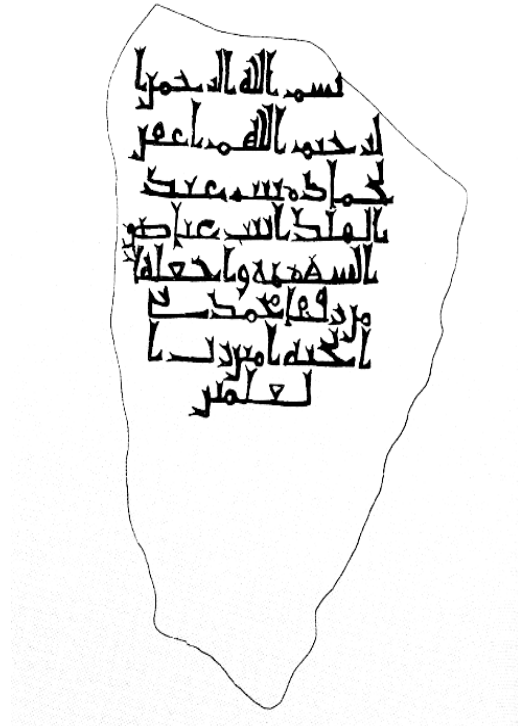 بسم الله الرحمن ا
لرحيم اللهم اغفر
لحماده بنت عبد
الملك عياض
السهميه واجعلها
من رفقا محمد في
الجنه امين رب ا
لعلمين